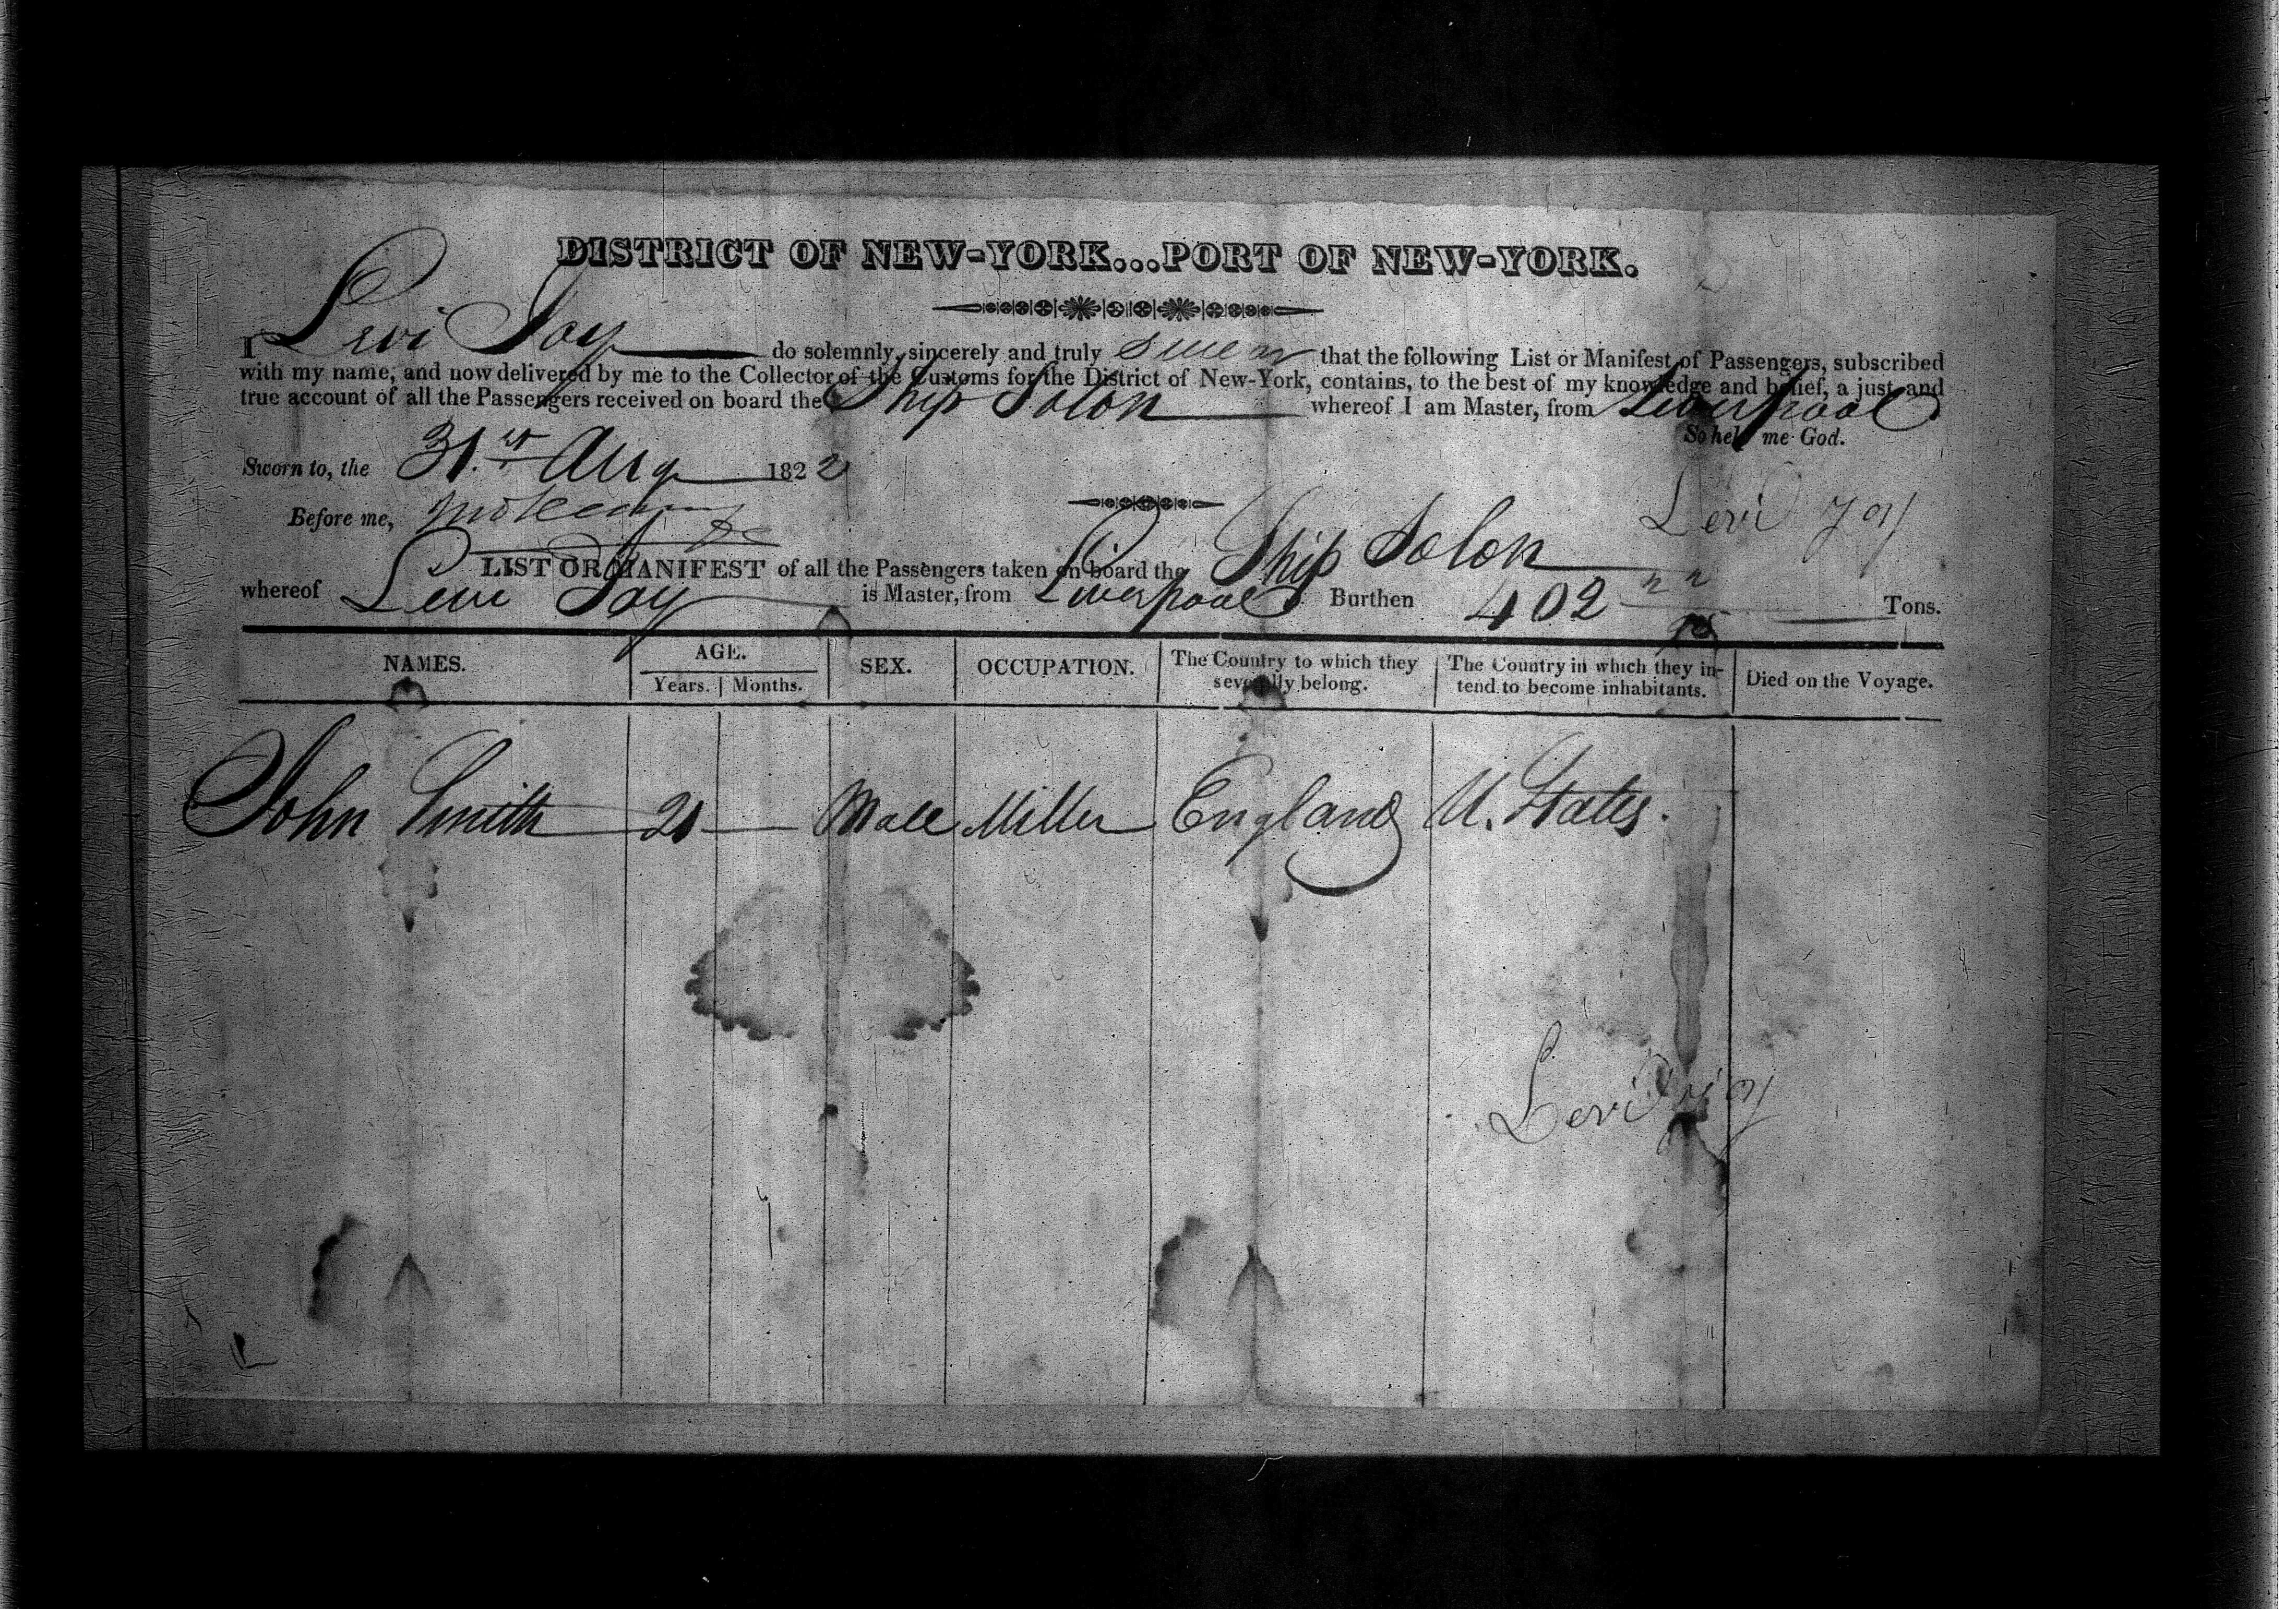 DISTRICT OF NEW-YORK...PORT OF NEW-YORK.
I Levi Joy do solemnly, sincerely and truly swear that the following List or Manifest of Passengers, subscribed
with my name, and now delivered by me to the Collector of the Customs for the District of New-York, contains, to the best of my knowledge and belief, a just and
true account of all the Passengers received on board the Ship Solon whereof I am Master, from Liverpool
So help me God.
Sworn to, the 31.st Aug 1822
Levi Joy
Before me,
LIST OR MANIFEST of all the Passengers taken on board the Ship Solon
whereof Levi Joy is Master, from Liverpool Burthen 402 Tons.
NAMES. AGE. SEX. OCCUPATION. The Country to which they severally belong. The Country in which they intend to become inhabitants. Died on the Voyage.
Years. Months.
John Smith 21 Male Miller England U. States.
Levi Joy